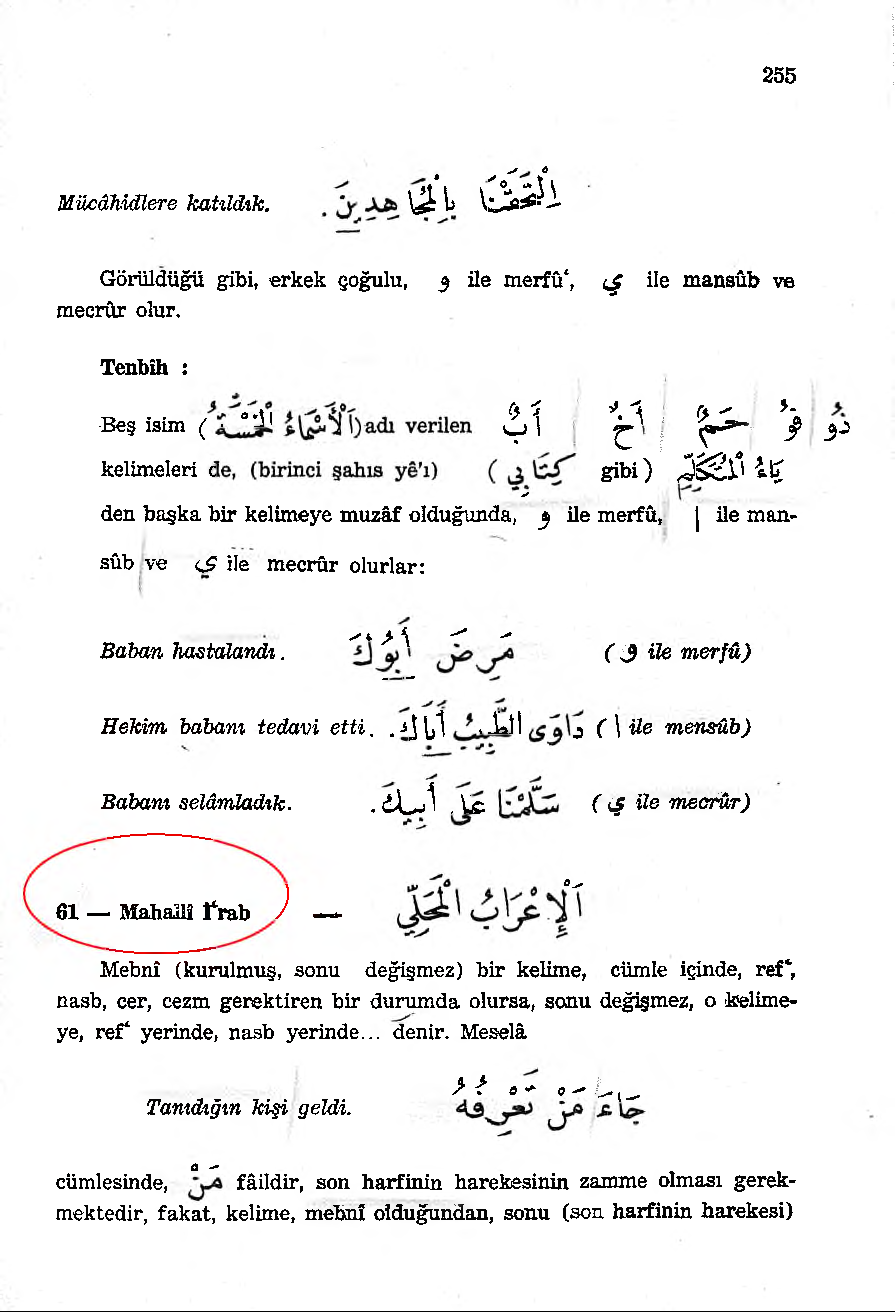 255
Mücâhidlere katıldık. اِلْتَحَقْنَا بِالْمُجَاهِدِينَ .
Görüldüğü gibi, erkek çoğulu, و ile merfû‘, ي ile mansûb ve
mecrûr olur.
Tenbîh :
Beş isim (اَلْأَسْمَاءُ الْخَمْسَةُ) adı verilen أَبٌ أَخٌ حَمٌ فُو ذُو
kelimeleri de, (birinci şahıs yê'ı) ( كِتَابِي gibi ) يَاءُ الْمُتَكَلِّمِ
den başka bir kelimeye muzâf olduğunda, و ile merfû, ا ile man-
sûb ve ي ile mecrûr olurlar:
Baban hastalandı. مَرِضَ أَبُوكَ ( و ile merfû)
Hekim babanı tedavi etti. دَاوَى الطَّبِيبُ أَبَاكَ. ( ا ile mensûb)
Babanı selâmladık. سَلَّمْنَا عَلَى أَبِيكَ. ( ي ile mecrûr)
61 — Mahallî İ‘rab — اَلْإِعْرَابُ الْمَحَلِّي
Mebnî (kurulmuş, sonu değişmez) bir kelime, cümle içinde, ref‘,
nasb, cer, cezm gerektiren bir durumda olursa, sonu değişmez, o kelime-
ye, ref‘ yerinde, nasb yerinde... denir. Meselâ
Tanıdığın kişi geldi. جَاءَ مَنْ تَعْرِفُهُ
cümlesinde, مَنْ fâildir, son harfinin harekesinin zamme olması gerek-
mektedir, fakat, kelime, mebnî olduğundan, sonu (son harfinin harekesi)